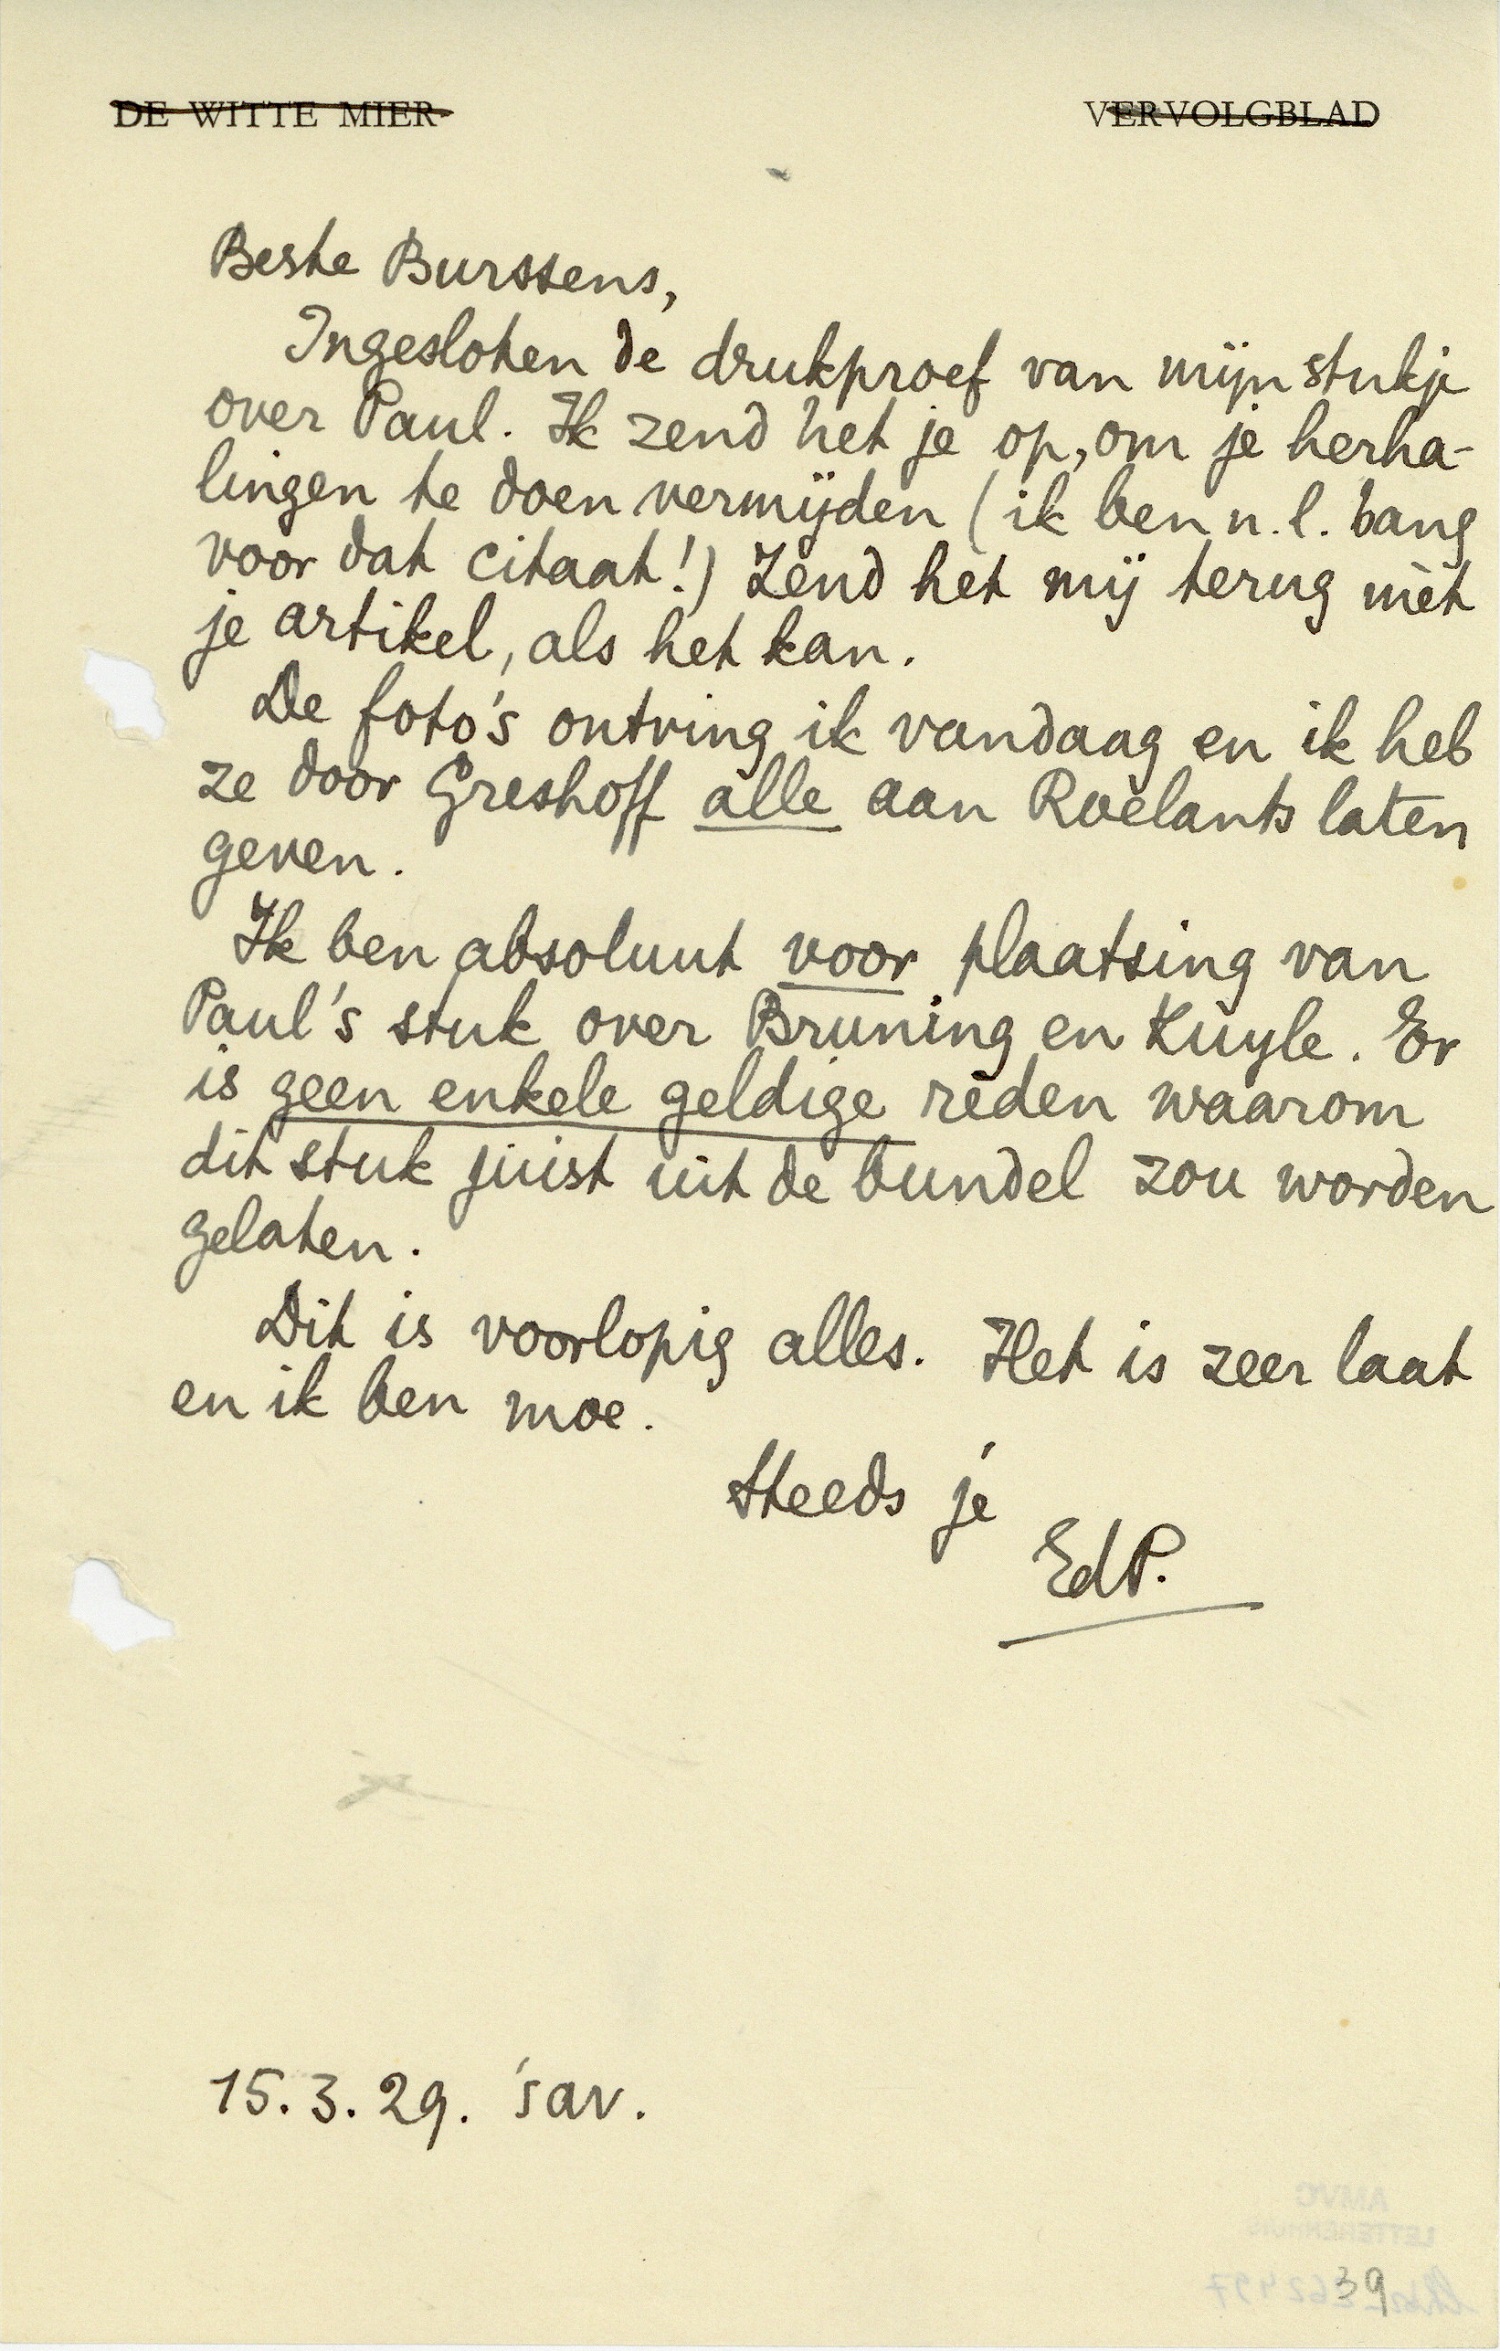 DE WITTE MIER VERVOLGBLAD
Beste Burssens,
Ingesloten de drukproef van mijn stukje
over Paul. Ik zend het je op, om je herha-
lingen te doen vermijden (ik ben n.l. bang
voor dat citaat!) Zend het mij terug mèt
je artikel, als het kan.
De foto's ontving ik vandaag en ik heb
ze door Greshoff alle aan Roelants laten
geven.
Ik ben absoluut voor plaatsing van
Paul's stuk over Bruning en Kuyle. Er
is geen enkele geldige reden waarom
dit stuk juist uit de bundel zou worden
gelaten.
Dit is voorlopig alles. Het is zeer laat
en ik ben moe.
Steeds je
EdP.
15.3.29. 'sav.
AMVC
LETTERENHUIS
39